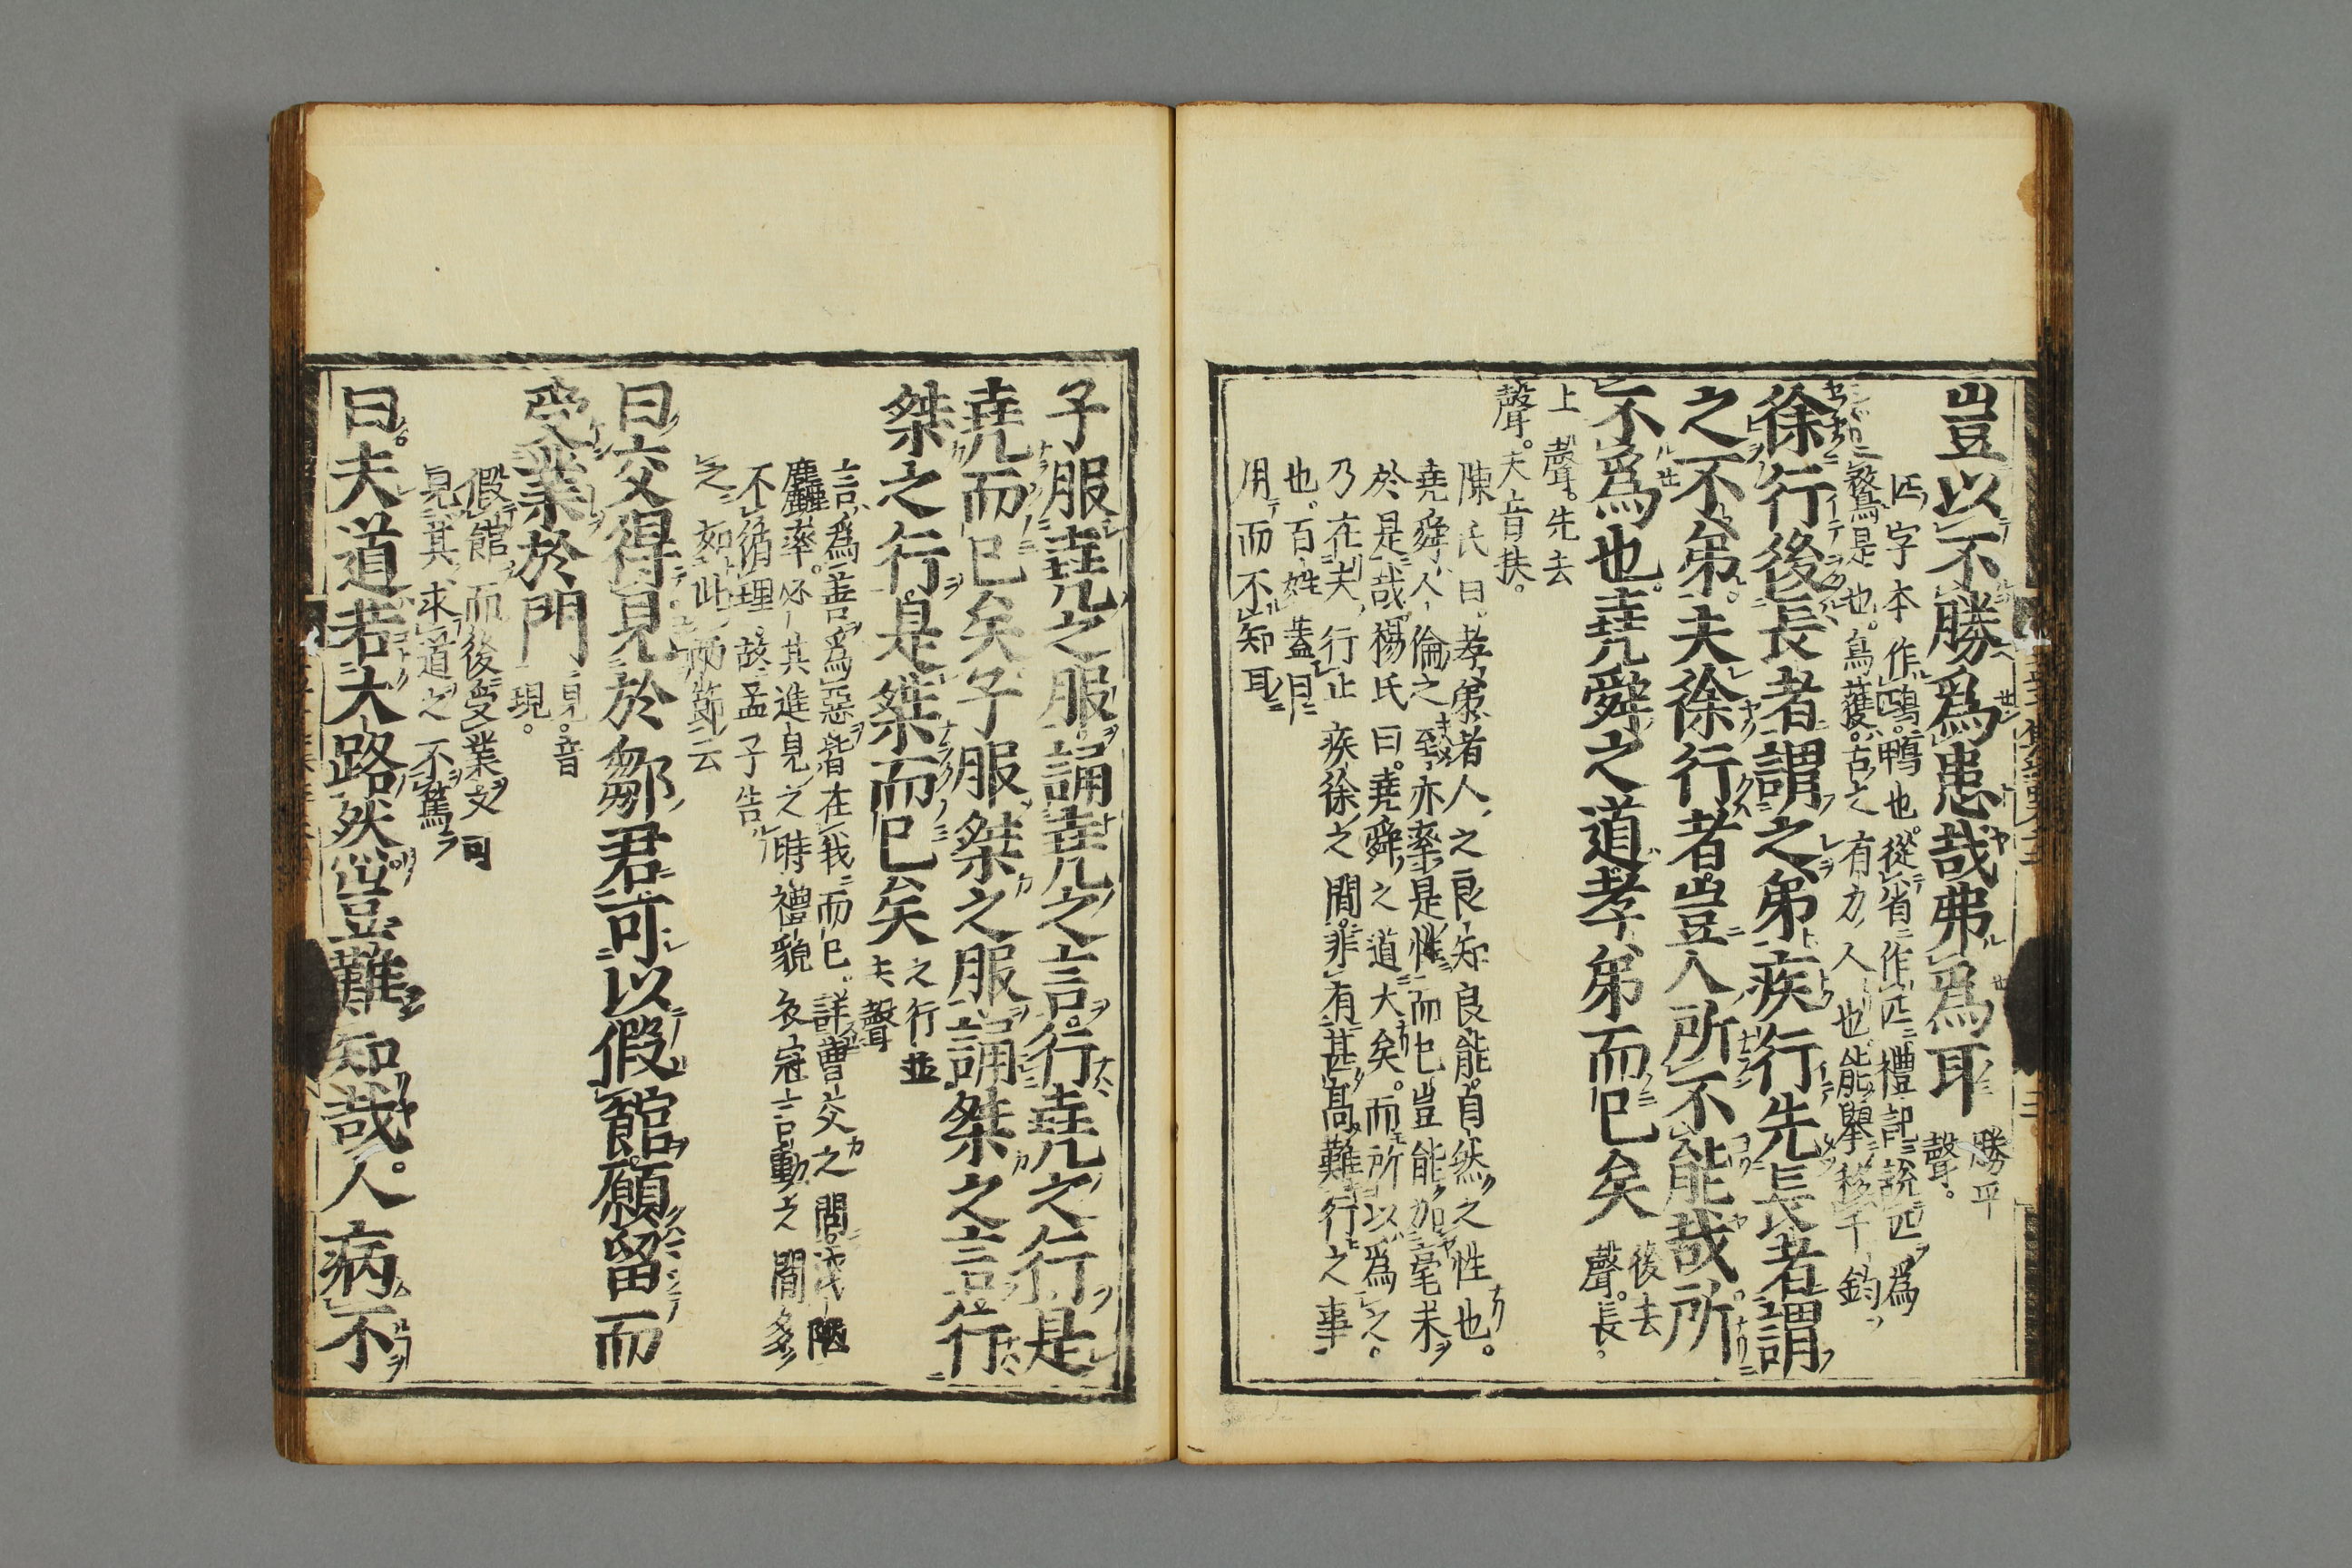 豈以不勝爲患哉弗爲耳
勝平
聲。
匹字本作鴄。鴨也。從省作匹。禮記說匹爲
鶩是也。烏獲。古之有力人也。能擧移千鈞。
徐行後長者謂之弟疾行先長者謂
之不弟。夫徐行者豈人所不能哉。所
不爲也。堯舜之道孝弟而已矣
後去
聲。長。
上聲。先去
聲。夫音扶。
陳氏曰。孝弟者人之良知良能。自然之性也。
堯舜人倫之至。亦率是性而已。豈能加毫末
於是哉。楊氏曰。堯舜之道大矣。而所以爲之。
乃在夫行止疾徐之間。非有甚高難行之事
也。百姓蓋曰
用而不知耳
子服堯之服。誦堯之言。行堯之行。是
堯而已矣子服桀之服。誦桀之言。行
桀之行。是桀而已矣
之行並
去聲
言爲善爲惡皆在我而已。詳曹交之問。淺陋
麤率。必其進見之時禮貌衣冠言動之間多
不循理。故孟子告
之如此兩節云
曰交得見於鄒君可以假館。願留而
受業於門
見。音
現。
假館而後受業。又可
見其求道之不篤
曰。夫道若大路然。豈難知哉。人病不